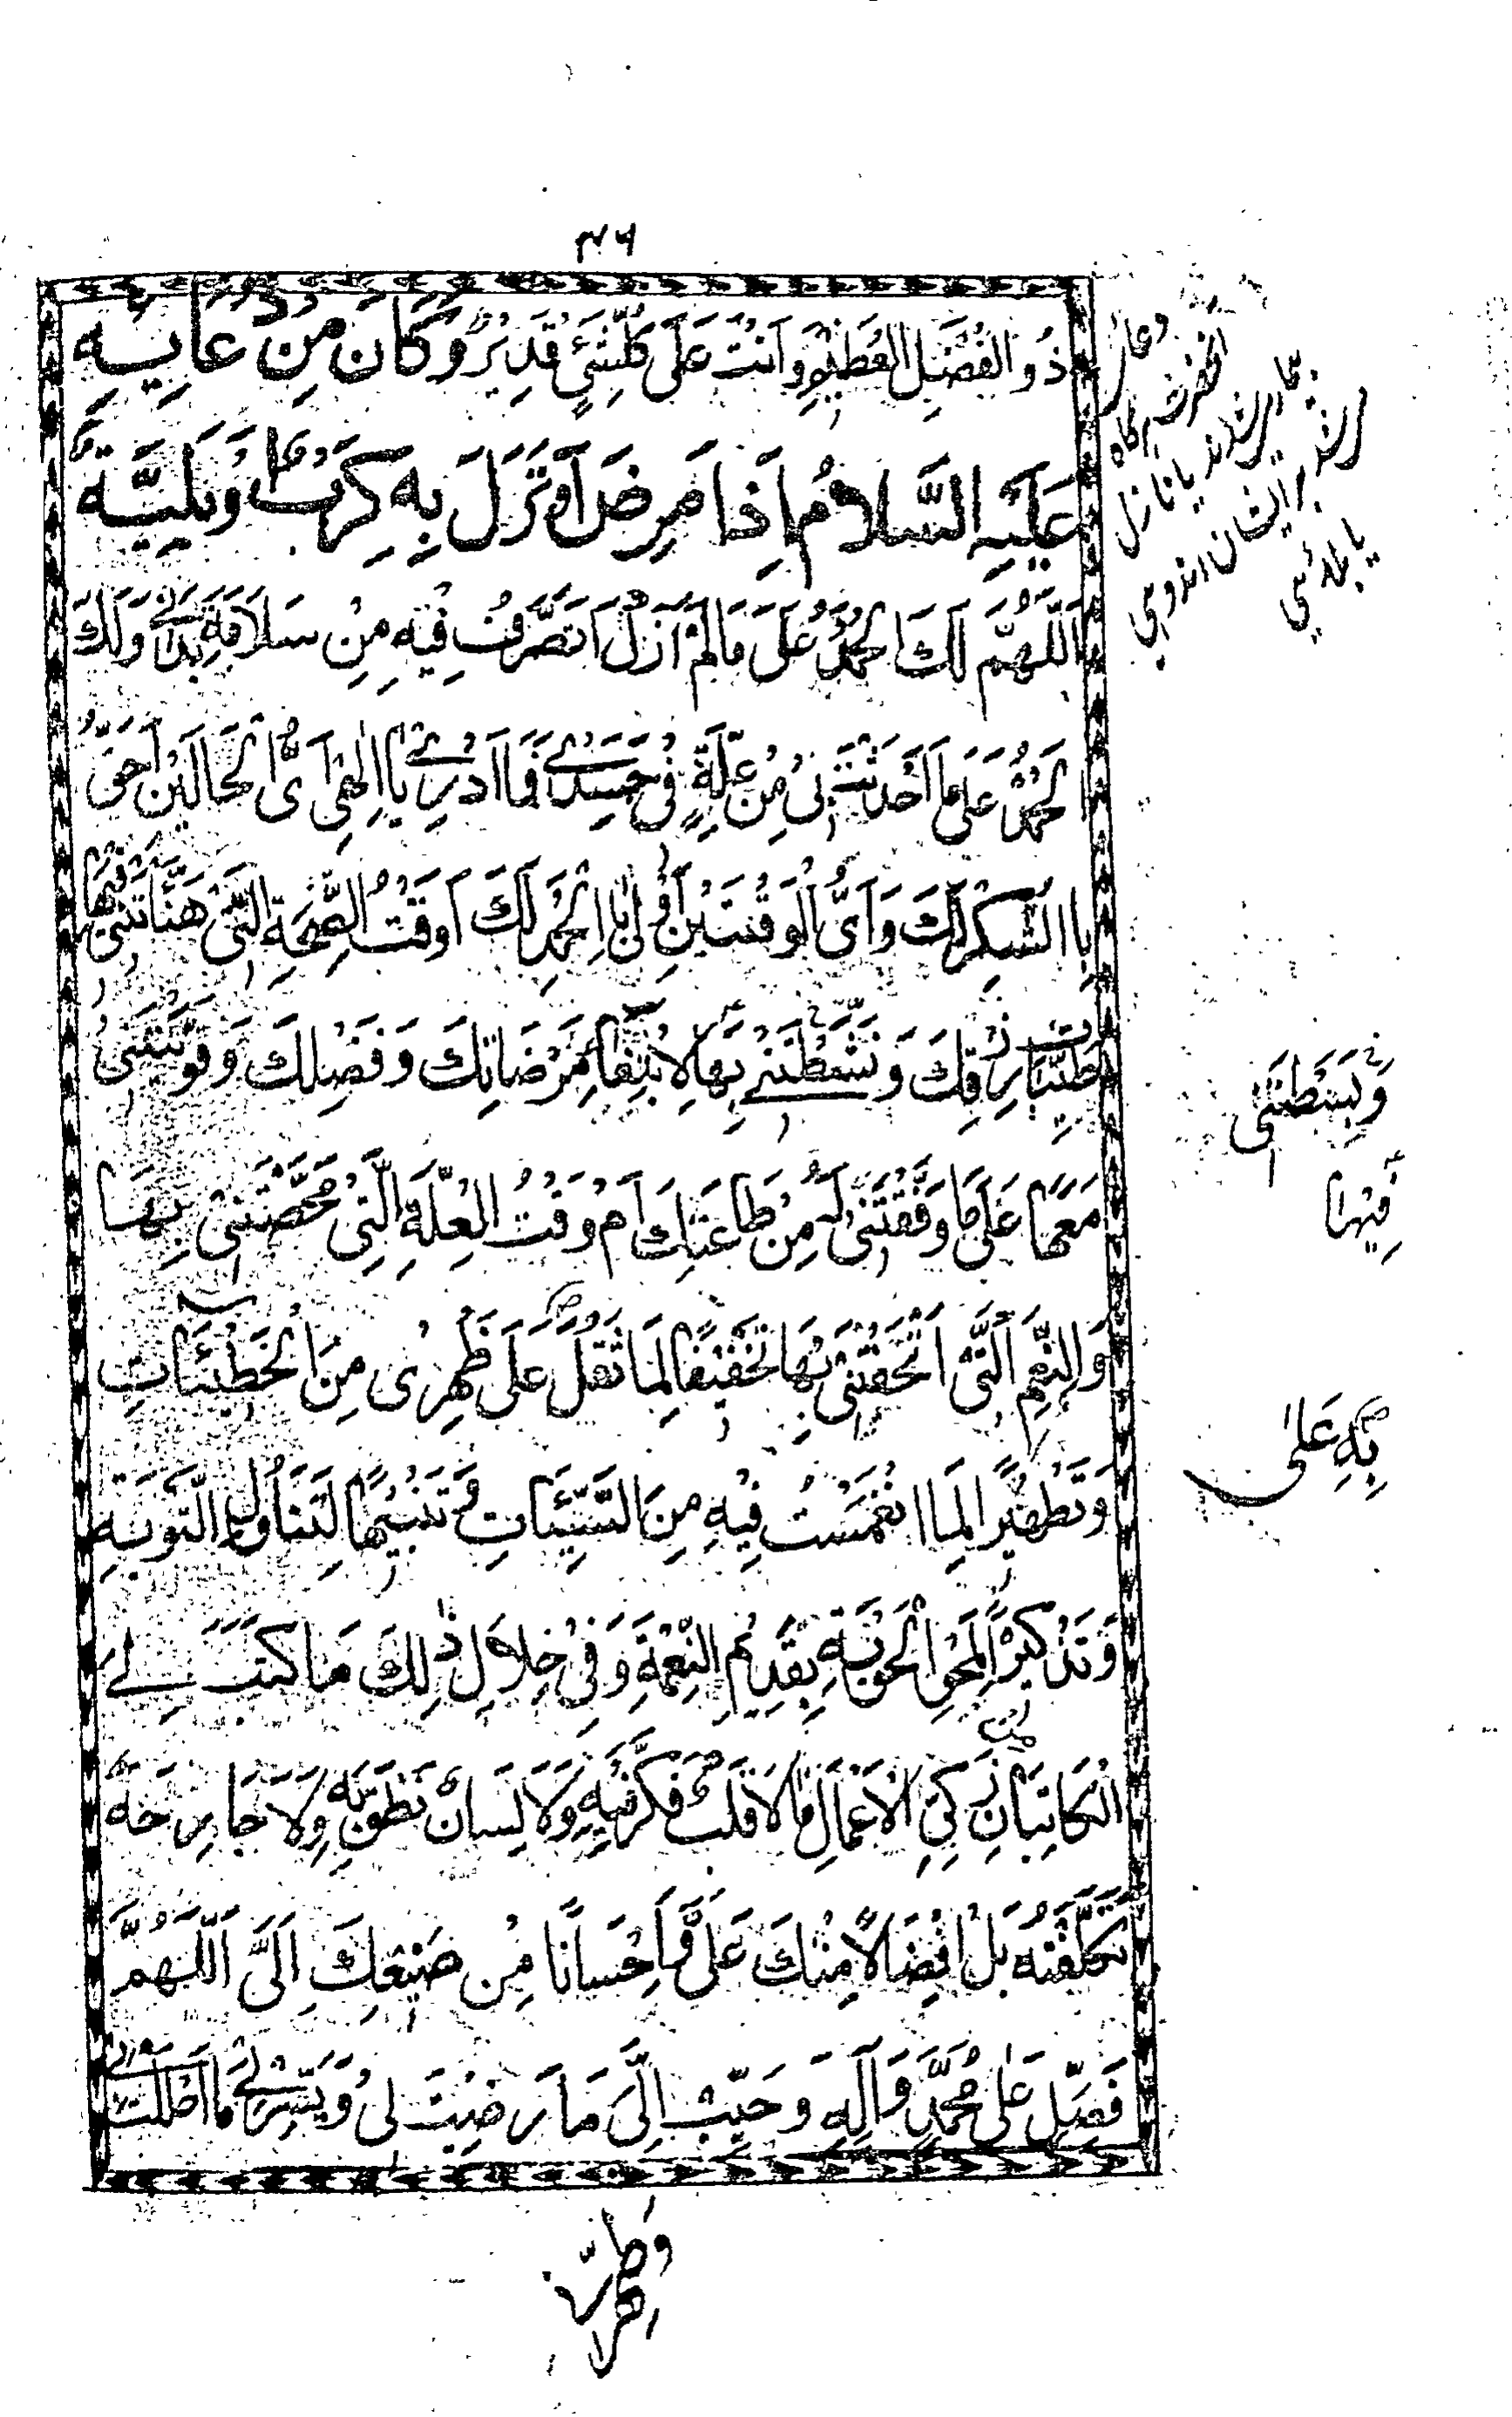 ٣٧٦
ذُو الْفَضْلِ الْعَظِيْمِ وَاَنْتَ عَلَى كُلِّشَيْءٍ قَدِيْرٌ وَكَانَ مِنْ دُعَائِهِ
عَلَيْهِ السَّلَامُ اِذَا مَرِضَ اَوْ نَزَلَ بِهِ كَرْبٌ اَوْ بَلِيَّةٌ
اَللّٰهُمَّ لَكَ الْحَمْدُ عَلَى مَا لَمْ اَزَلْ اَتَصَرَّفُ فِيْهِ مِنْ سَلَامَةِ بَدَنِيْ وَلَكَ
الْحَمْدُ عَلَى مَا اَحْدَثْتَ بِيْ مِنْ عِلَّةٍ فِيْ جَسَدِيْ فَمَا اَدْرِيْ يَا اِلٰهِيْ اَيُّ الْحَالَيْنِ اَحَقُّ
بِالشُّكْرِ لَكَ وَاَيُّ الْوَقْتَيْنِ اَوْلٰى بِالْحَمْدِ لَكَ اَوَقْتُ الصِّحَّةِ الَّتِيْ هَنَّأْتَنِيْ فِيْهَا
طَيِّبَاتِ رِزْقِكَ وَنَشَّطْتَنِيْ بِهَا لِابْتِغَاءِ مَرْضَاتِكَ وَفَضْلِكَ وَقَوَّيْتَنِيْ
مَعَهَا عَلَى مَا وَفَّقْتَنِيْ لَهُ مِنْ طَاعَتِكَ اَمْ وَقْتُ الْعِلَّةِ الَّتِيْ مَحَّصْتَنِيْ بِهَا
وَالنِّعَمِ الَّتِيْ اَتْحَفْتَنِيْ بِهَا تَخْفِيْفًا لِمَا ثَقُلَ عَلَى ظَهْرِيْ مِنَ الْخَطِيْئَاتِ
وَتَطْهِيْرًا لِمَا انْغَمَسْتُ فِيْهِ مِنَ السَّيِّئَاتِ وَتَنْبِيْهًا لِتَنَاوُلِ التَّوْبَةِ
وَتَذْكِيْرًا لِمَحْوِ الْحَوْبَةِ بِقَدِيْمِ النِّعْمَةِ وَفِيْ خِلَالِ ذٰلِكَ مَا كَتَبَ لِيْ
الْكَاتِبَانِ مِنْ زَكِيِّ الْاَعْمَالِ مَا لَا قَلْبٌ فَكَّرَ فِيْهِ وَلَا لِسَانٌ نَطَقَ بِهِ وَلَا جَارِحَةٌ
تَكَلَّفَتْهُ بَلْ اِفْضَالًا مِنْكَ عَلَيَّ وَاِحْسَانًا مِنْ صَنِيْعِكَ اِلَيَّ اَللّٰهُمَّ
فَصَلِّ عَلٰى مُحَمَّدٍ وَآلِهِ وَحَبِّبْ اِلَيَّ مَا رَضِيْتَ لِيْ وَيَسِّرْ لِيْ مَا اَحْلَلْتَ بِيْ
وَطَهِّرْنِيْ
دعای آنحضرت گاه
بیمار میشدند یا نازل
میشد بر ایشان اندوهی
یا بلائی
وَبَسَطْتَنِيْ
فِيْهَا
بِهِ عَلٰى